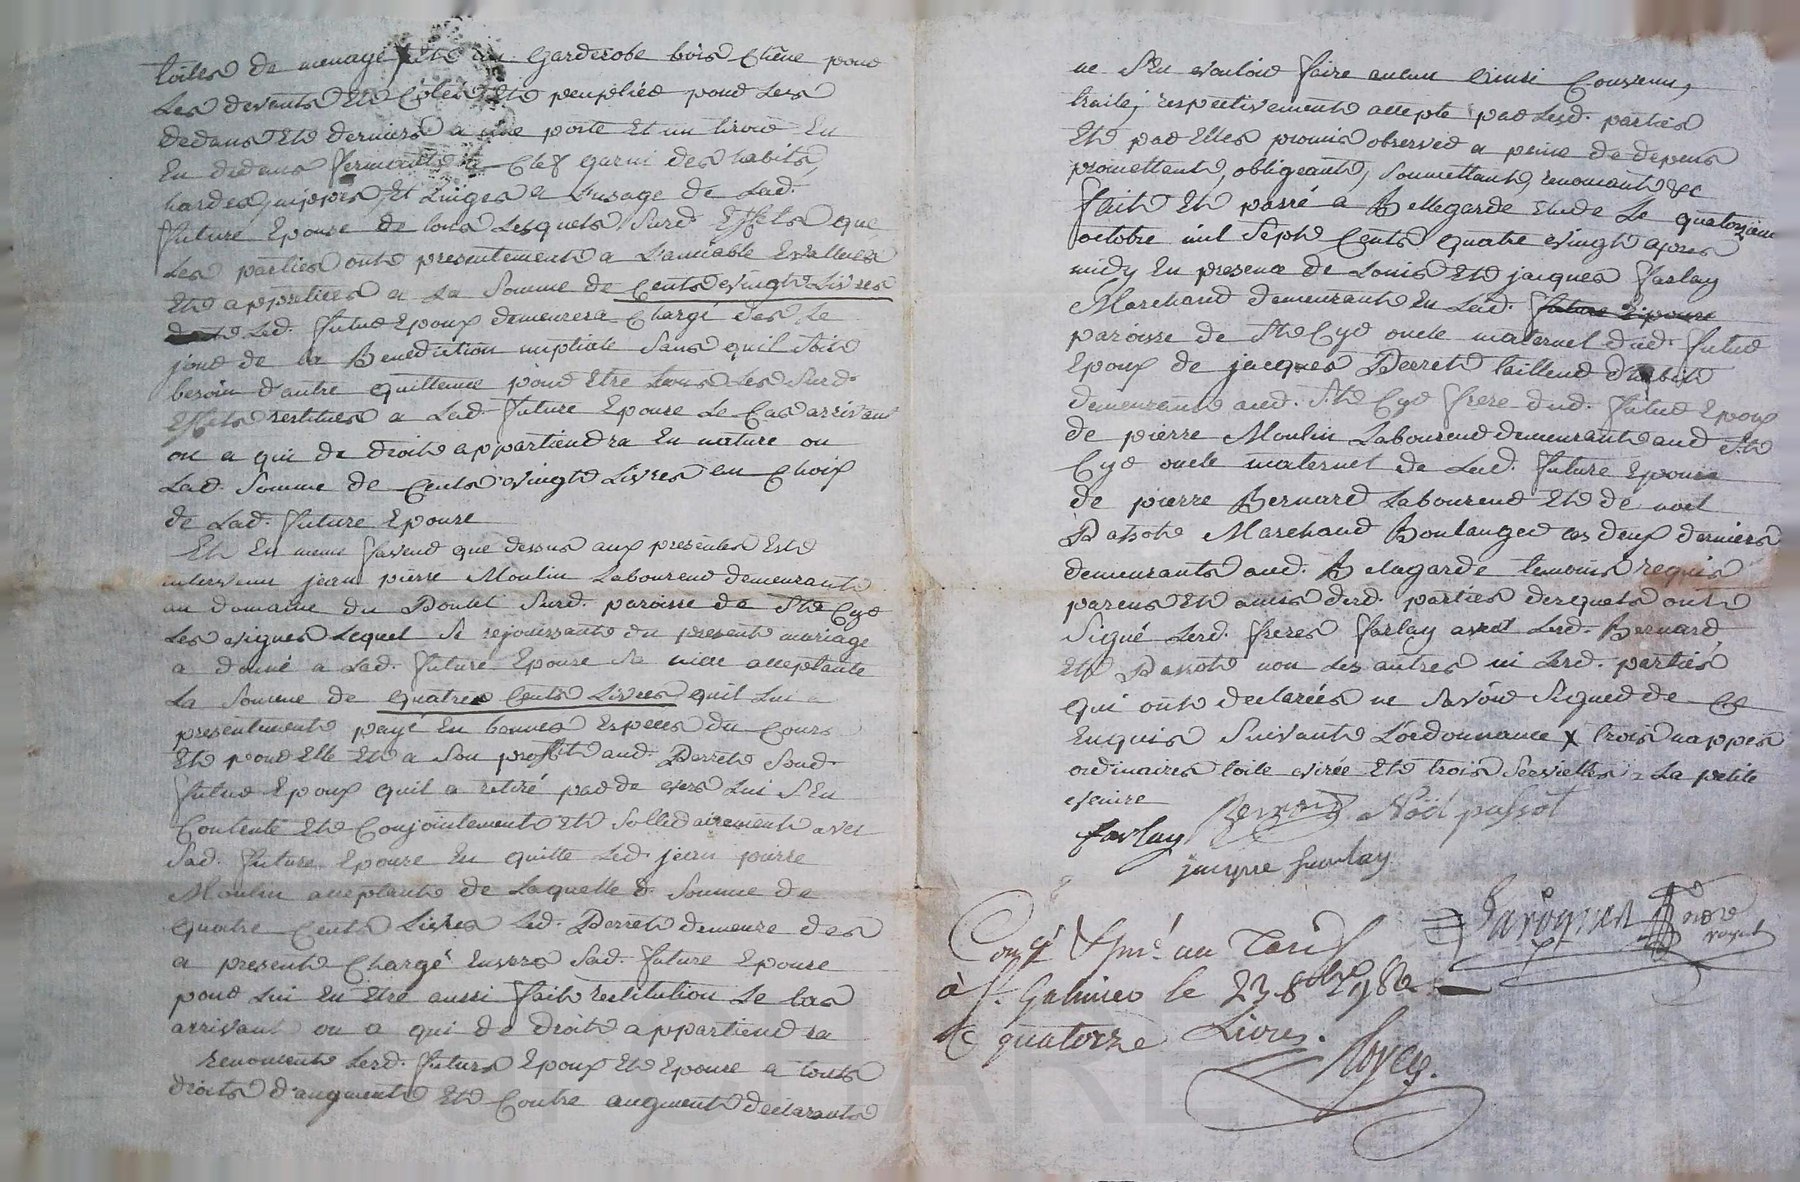 toiles de menage et un garderobe bois chêne pour
les devants et côtés et peuplier pour les
dedans et derniers a une porte et un tiroir en
en dedans fermante a clef garni des habits,
hardes, nippes et linges a l'usage de lad.
future epouse de tous lesquels surd. effets que
les parties ont presentement a l'amiable evallués
et appretiées a la somme de cents vingt livres
led. futur epoux demeurera chargé des le
jour de la benediction nuptiale sans quil soit
besoin d'autre quittance pour etre tous les surd.
effets restitués a lad. future epouse le cas arrivant
ou a qui de droit appartiendra en nature ou
lad. somme de cents vingt livres au choix
de lad. future epouse
Et en meme faveur que dessus aux presentes est
intervenu jean pierre Moulin laboureur demeurant
au domaine du surd. paroisse de St Cyr
les vignes lequel se rejouissant du present mariage
a donné a lad. future epouse sa niece acceptante
la somme de quatres cents livres quil lui a
presentement payé en bonnes especes du cours
et pour elle et a son proffit aud. Perret sond.
futur epoux quil a retiré par de vers lui s'en
contente et conjointement et sollidairement avec
sad. future epouse en quitte led. jean pierre
Moulin acceptant de laquelle d. somme de
quatre cents livres led. Perret demeure des
a present chargé envers sad. future epouse
pour lui en etre aussi fait restitution le cas
arrivant ou a qui de droit appartiendra
renoncent lesd. futurs epoux et epouse a touts
droits d'augment et contre augment declarants
ne s'en vouloir faire aucun ainsi convenu,
traité, respectivement accepté par lesd. parties
et par elles promis observer a peine de depens
promettant, obligeant, soumettant, renoncant &c
fait et passé a Bellegarde etude le quatorzieme
octobre mil sept cents quatre vingt apres
midy en presence de Louis et jacques Farlay
Marchand demeurant en lad. future epouse
paroisse de St Cyr oncle maternel dud. futur
epoux de jacques Perret tailleur d'habit
demeurant aud. St Cyr frere dud. futur epoux
de pierre Moulin laboureur demeurant aud St
Cyr oncle maternel de lad. future epouse
de pierre Bernard laboureur et de noel
Passot Marchand Boulanger ces deux derniers
demeurants aud. Belagarde temoins requis
parens et amis desd. parties desquels ont
signé lesd. freres Farlay avec lesd. Bernard
et Passot non les autres ni lesd. parties
qui ont declarées ne savoir signer de ce
enquis suivant l'ordonnance x trois nappes
ordinaires toile cirée et trois serviettes a la petite
venise
farlay Bernard Nöel passot
jacque farlay
Notre
royal
Con.lé & pné. au Tarif
à St. Galmier le 23 8bre 1780
R quatorze Livres.